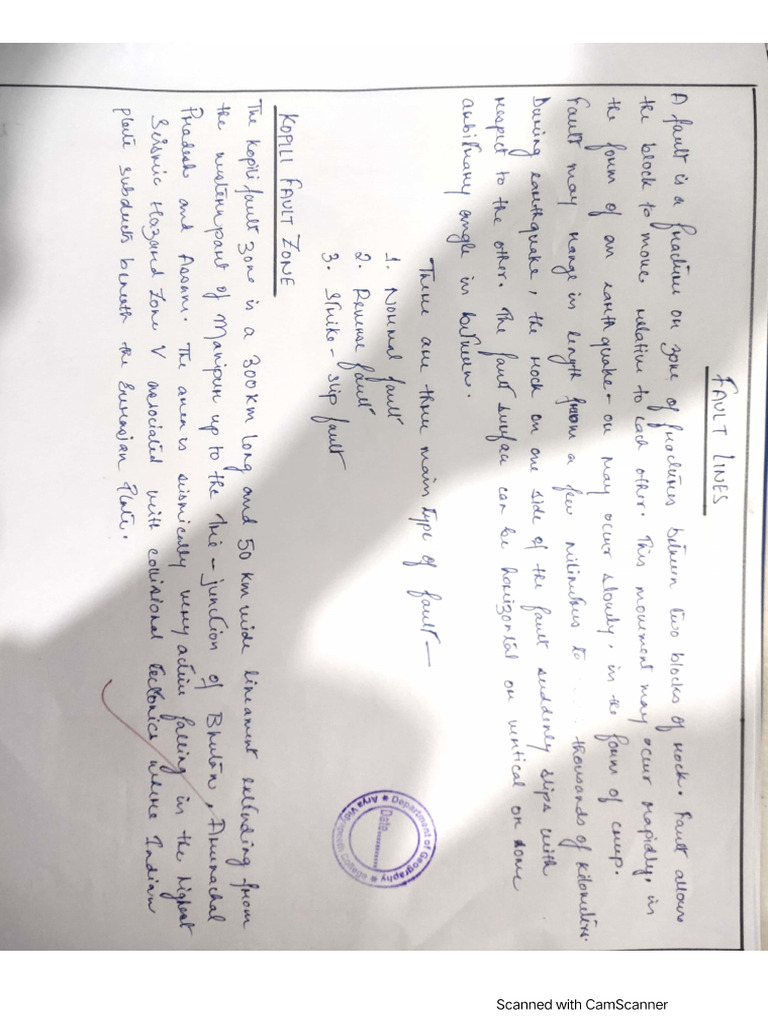 FAULT LINES
A fault is a fracture or zone of fractures between two blocks of rock. Fault allows
the block to move relative to each other. This movement may occur rapidly, in
the form of an earthquake - or may occur slowly, in the form of creep.
Fault may range in length from a few milimetres to .... thousands of kilometres.
During earthquake, the rock on one side of the fault suddenly slips with
respect to the other. The fault surface can be horizontal or vertical or some
arbitrary angle in between.
There are three main type of fault —
1. Normal fault
2. Reverse fault
3. Strike - slip fault
KOPILI FAULT ZONE
The Kopili fault zone is a 300 km long and 50 km wide lineament extending from
the western part of Manipur up to the Tri - junction of Bhutan, Arunachal
Pradesh and Assam. The area is seismically very active falling in the highest
Seismic Hazard Zone V associated with collisional tectonics where Indian
plate subducts beneath the Eurasian Plate.
Department of Geography
Date
Arya Vidyapeeth College
Scanned with CamScanner